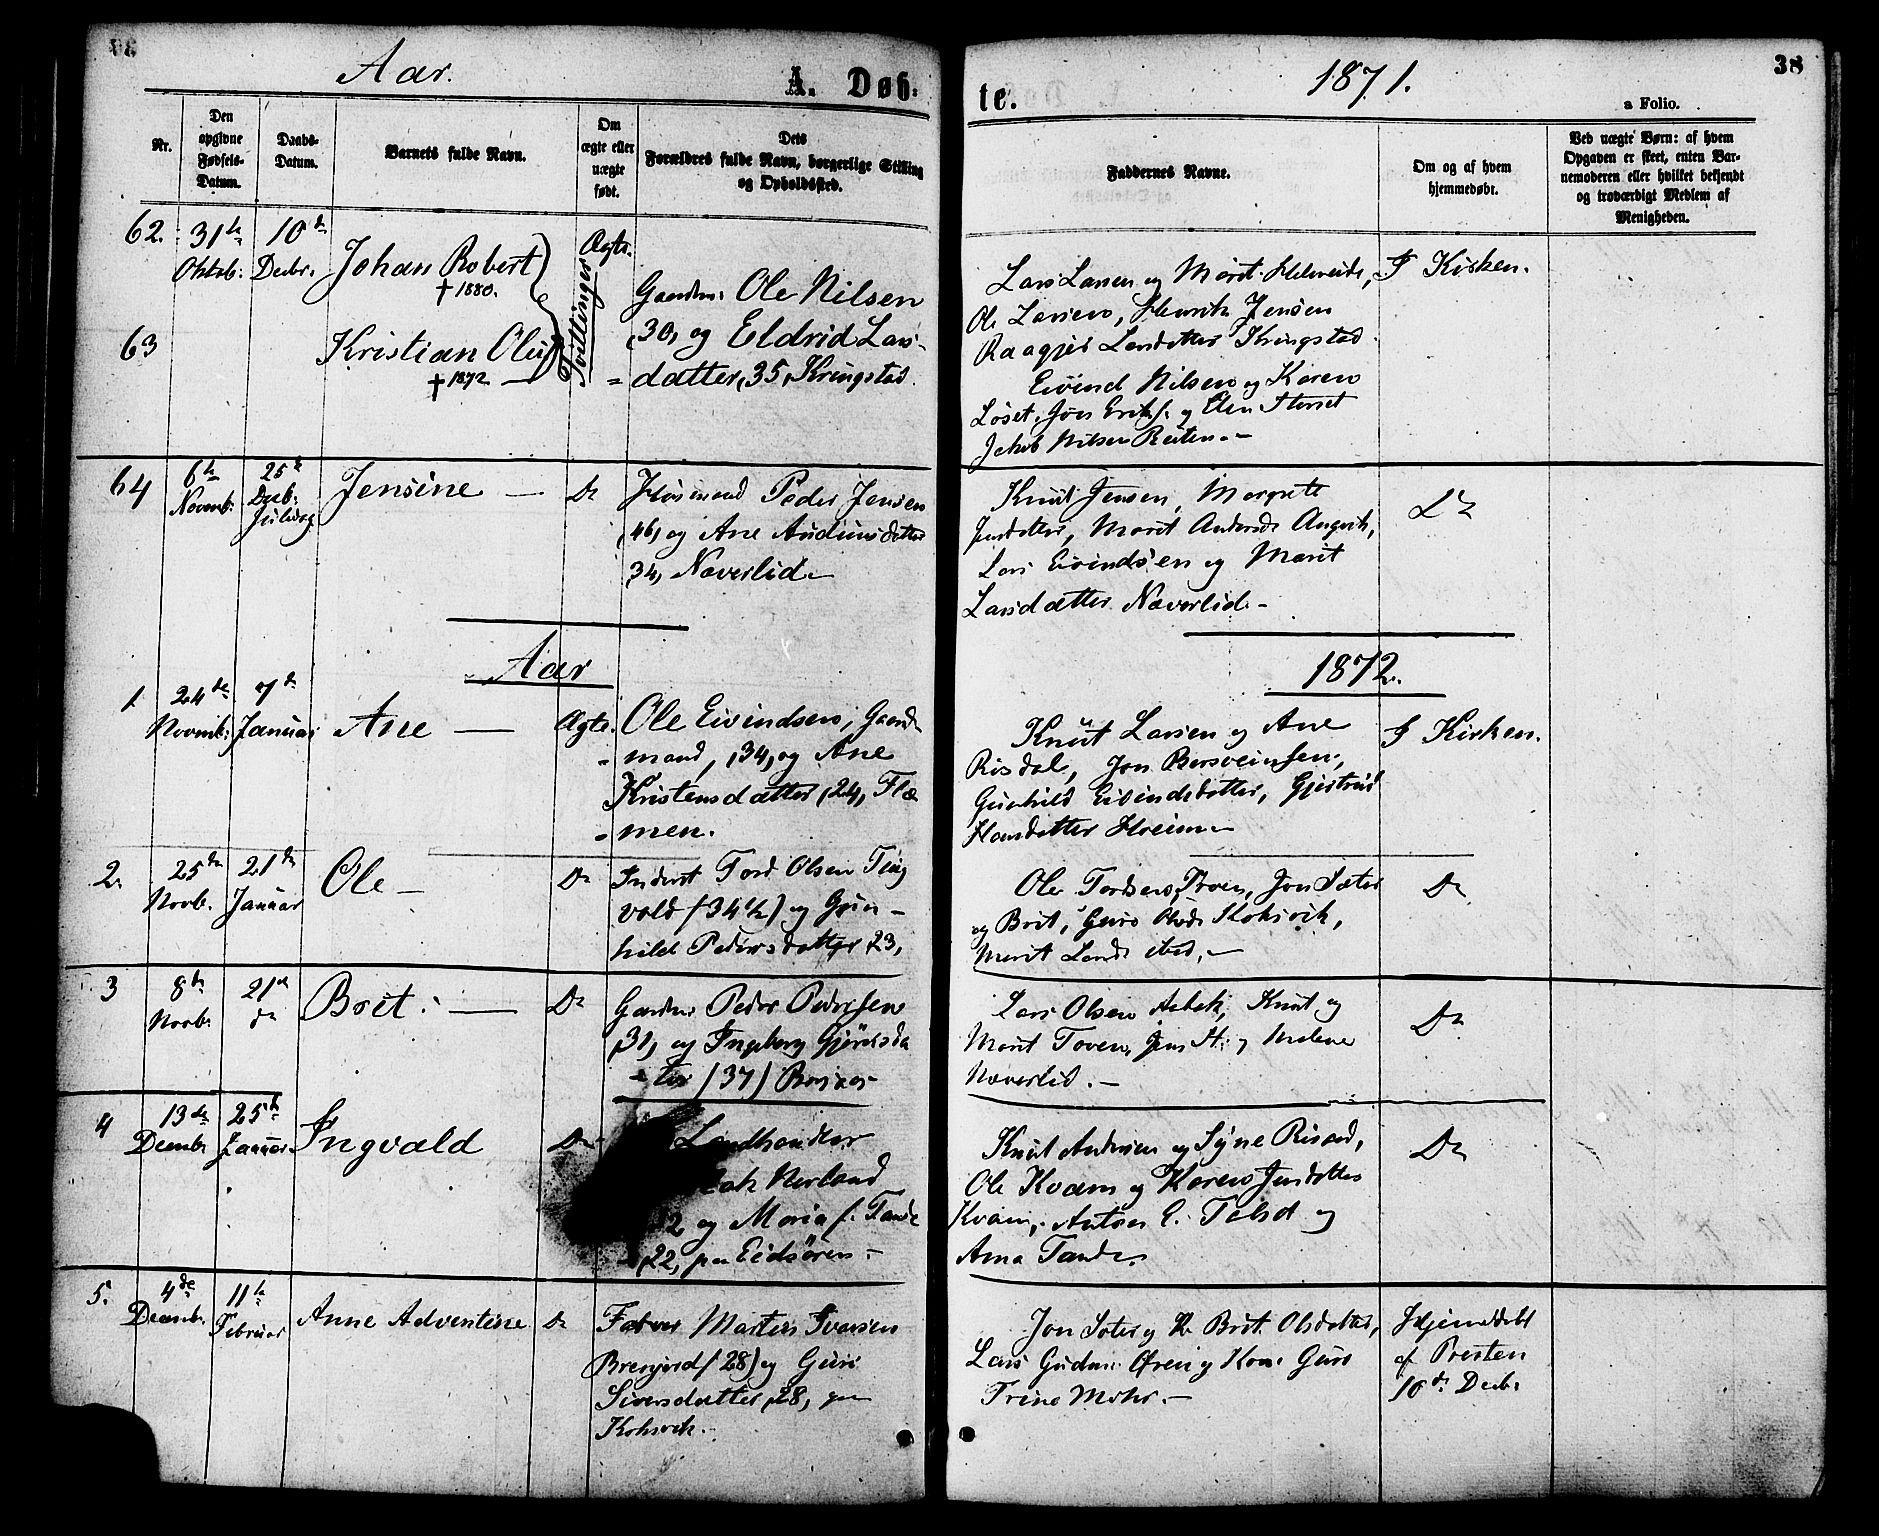 Aar. A. Døb-
te. 1871. 38
a Folio.
Nr.
Den opgivne Fødsels-Datum.
Daabs-Datum.
Barnets fulde Navn.
Om ægte eller uægte født.
Dets Forældres fulde Navn, borgerlige Stilling og Opholdssted.
Faddernes Navne.
Om og af hvem hjemmedøbt.
Ved uægte Børn: af hvem Opgaven er skeet, enten Barnemoderen eller hvilket bekjendt og troværdigt Medlem af Menigheden.
62. 31te Oktob: 10de Decbr. Johan Robert
† 1880.
Ægte.
Tvillinger
63 Kristian Oluf
† 1872
Gaardm: Ole Nilsen
,30, og Eldrid Lars-
datter, 35, Kringstad.
Lars Larsen og Marit
Ole Larsen, Henrik Jensen
Larsdatter Kringstad.
Eivind Nilsen og Karen
Løset, Jon og Elen
Jakob Nilsen Reiten.-
I Kirken.
64 6te Novemb: 25de Decb: Juledag Jensine - Do
Husmand Peder Jensen
,46, og Ane Audunsdatter
34, Næverlid.
Knut Jensen, Margrete
Jensdatter, Marit Andersd. Angvik,
Lars Eivindsen og Marit
Larsdatter Næverlid.-
Do
Aar 1872.
1. 24de Novemb: 7de Januar Ane - Ægte.
Ole Eivindsen, Gaard-
mand, ,34, og Ane
Kristensdatter, 24, Flæ-
men.
Knut Larsen og Ane
Risdal, Jon Bersveinsen,
Gunhild Eivindsdatter, Gjertrud
Hansdatter Hreim.-
I Kirken.
2. 25de Novb. 21de Januar Ole - Do
Inderst Tord Olsen Ting
vold (34½) og Gun-
hild Pedersdatter 23,
Ole Tordsen, Jon Sæter
og Brit, Guro Olsd. Koksvik,
Marit Larsd. ibid.-
Do
3 8de Novb. 21de do Brit. - Do
Gaardm: Peder Pedersen
,31, og Ingeborg
-ter (37)
Lars Olsen Asbak, Knut og
Marit Toven, Jens H. og Malene
Næverlid.-
Do
4 13de Decemb. 25de Januar Ingvald Do
Landhandler
Nerland
og Maria f. Tande
,22, paa Eidsøren.-
Knut Andersen og Syne
Ole Kvam og Karen Jensdatter
Kvam, Anton E. og
Anna Tande.
Do
5. 4de Decemb. 11te Februar Anne Adventine Do
Farver Martin Ivarsen
(28) og Guri
Siversdatter, 28, paa
Koksvik.-
Jon Sæter og K. Brit Olsdatter,
Lars Gudm. Øren og Kone Guro
Trine Mohr.-
Hjemmedøbt
af Presten
10de Decb.